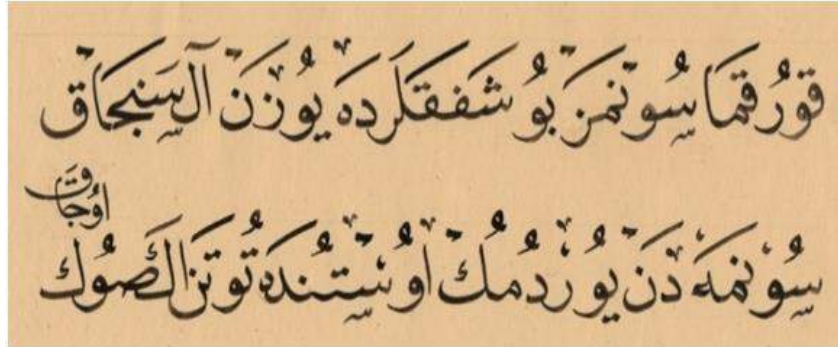 قورُقما سُونمَز بُو شفقلرَده يُوزن آل سَنجاق
سُونمه دَن يُوردُمُك اوُستُنده تُوتن اڭ صوُڭ اوُجاق